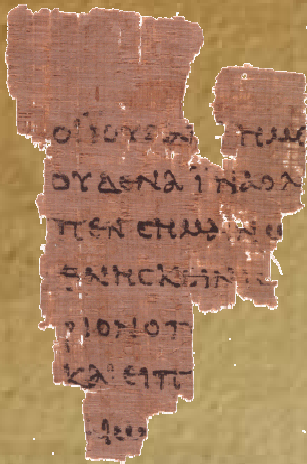 ΟΙ ΙΟΥΔΑΙ ΗΜ
ΟΥΔΕΝΑ ΪΝΑ Ο Λ
ΠΕΝ ϹΗΜΑΙΝΩ
ΘΝΗϹΚΕΙΝ
ΡΙΟΝ Ο Π
ΚΑΙ ΕΙΠ